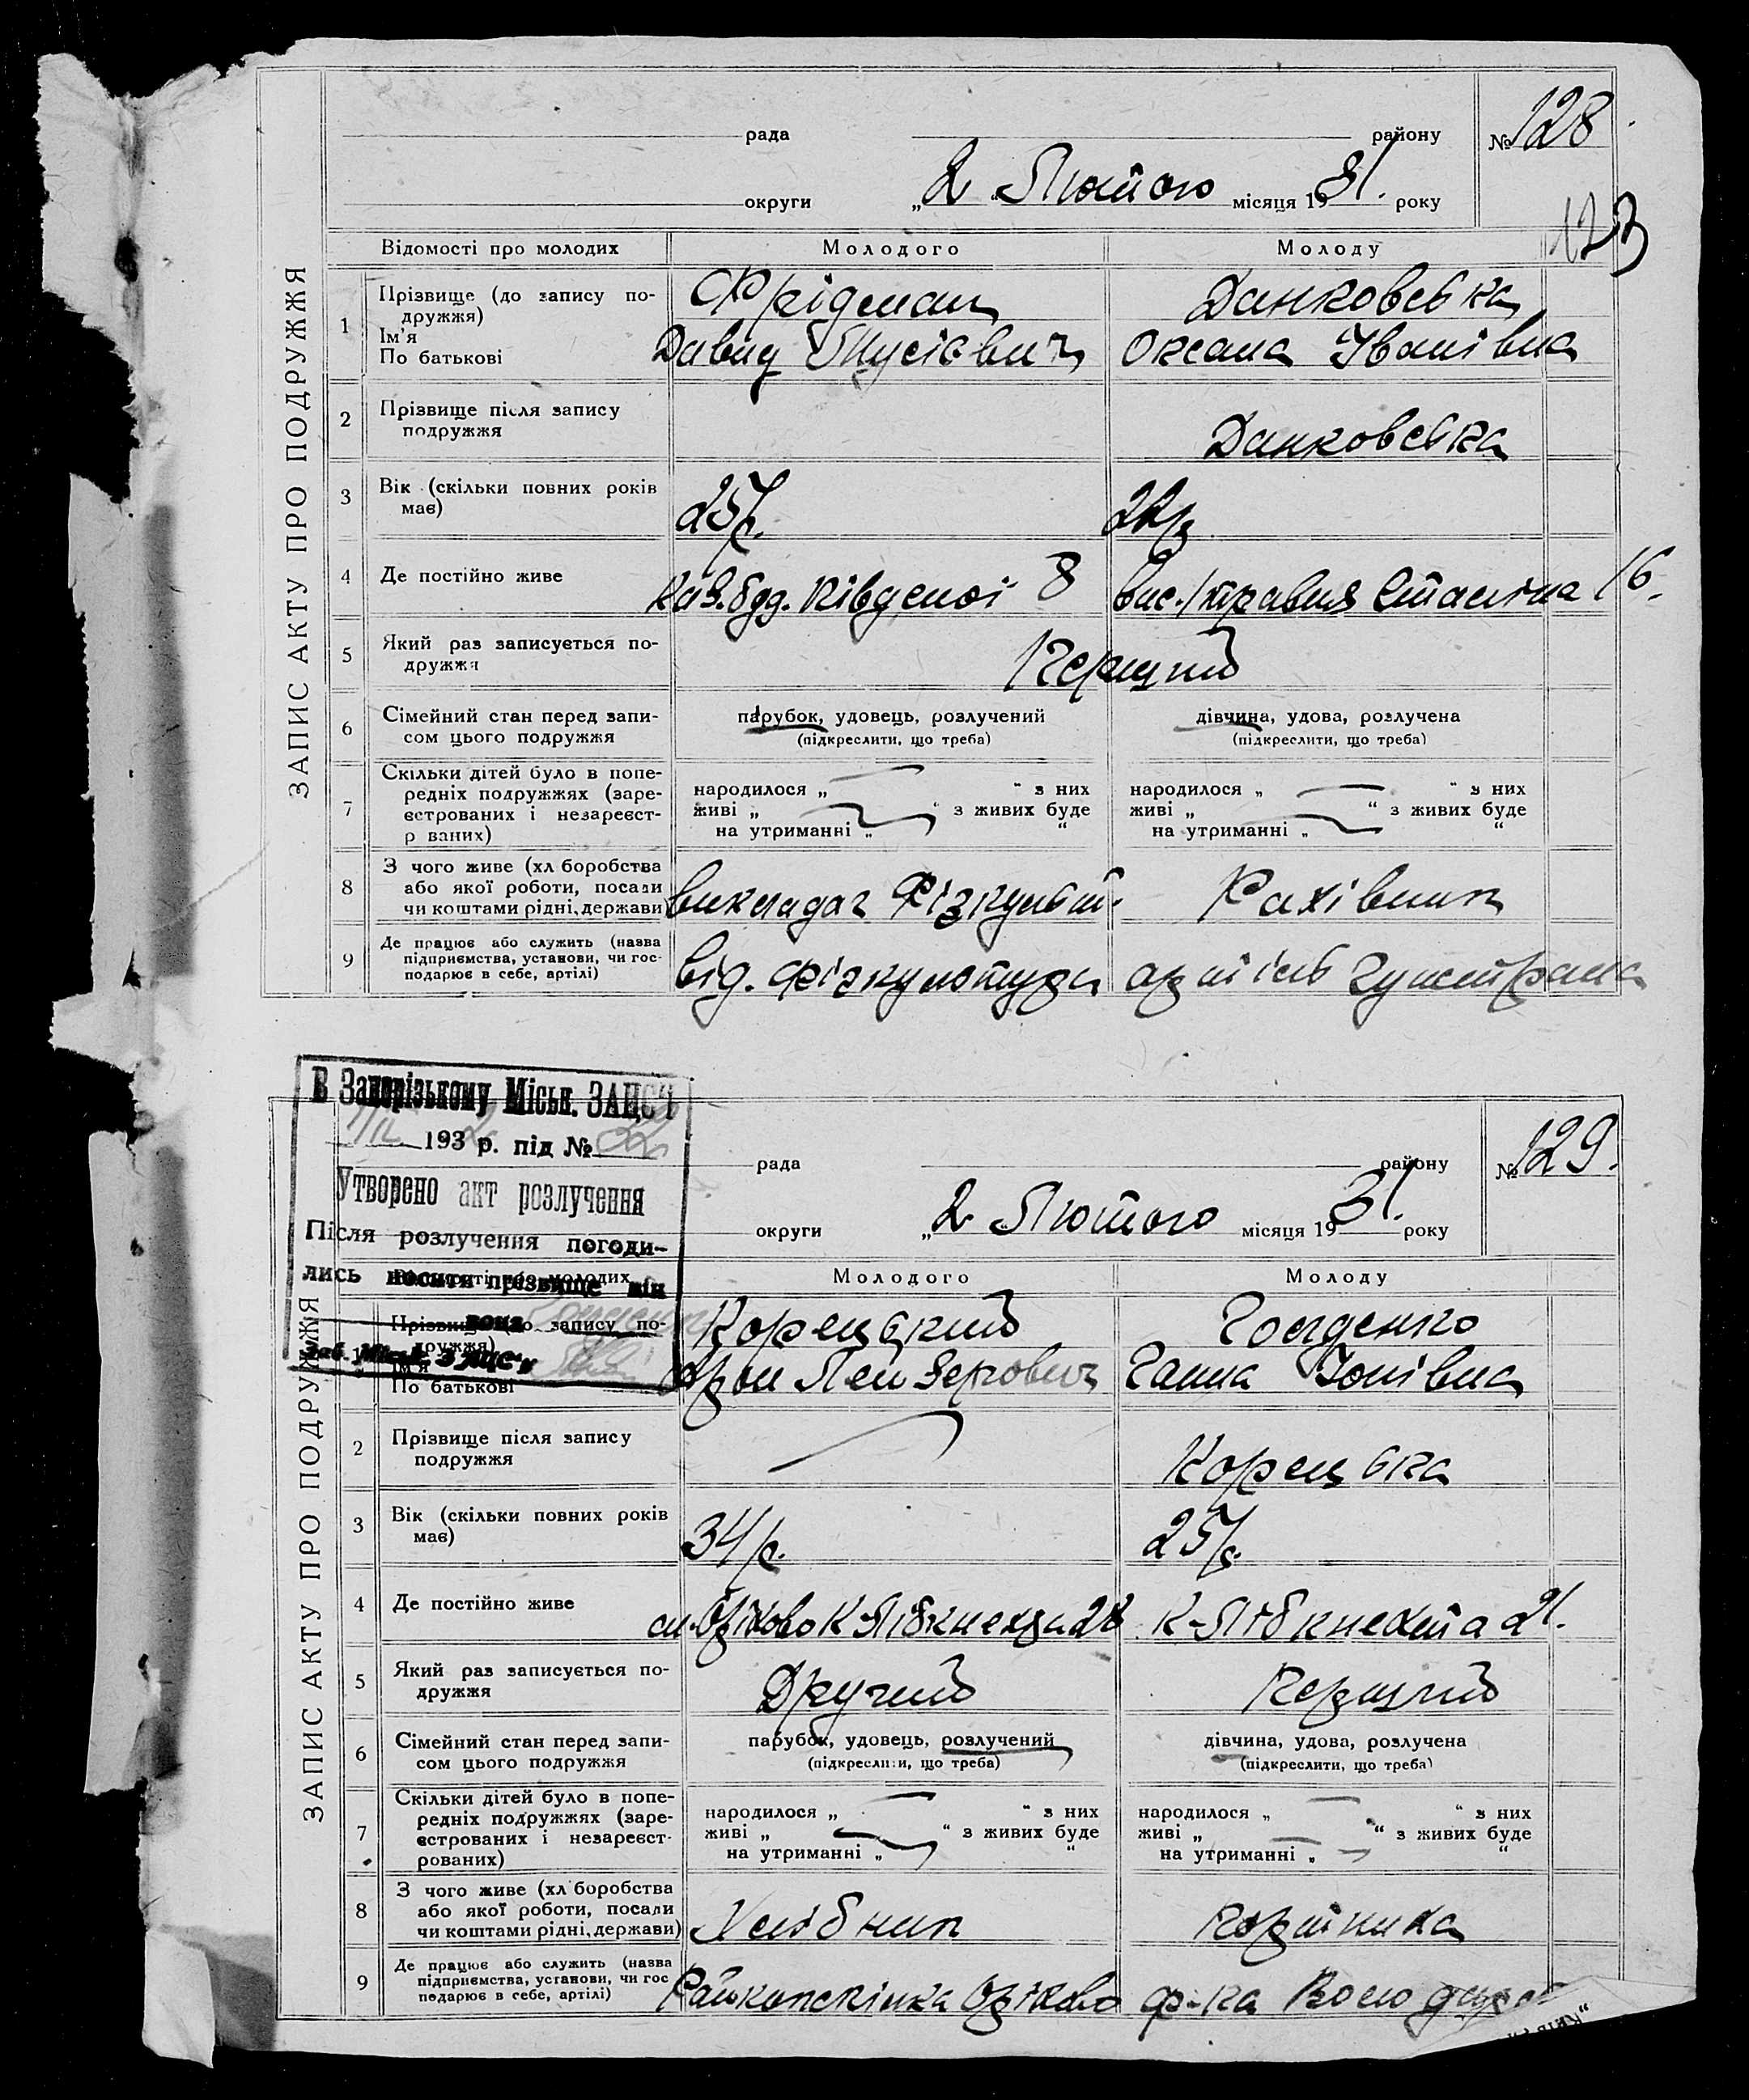 ЗАПИС АКТУ ПРО ПОДРУЖЖЯ
рада району № 128
округи „2“ Лютого місяця 1931. року
123
Відомості про молодих Молодого Молоду
1 Прізвище (до запису подружжя) Фрідман Данковська
Ім'я
По батькові Давид Мусієвич Оксана Іванівна
2 Прізвище після запису
подружжя Данковська
3 Вік (скільки повних років
має) 25 р. 22 р.
4 Де постійно живе 8 вис. 1 травня Сталіна 16.
5 Який раз записується по-
дружжя Перший
6 Сімейний стан перед запи-
сом цього подружжя
парубок, удовець, розлучений дівчина, удова, розлучена
(підкреслити, що треба) (підкреслити, що треба)
7 Скільки дітей було в попе-
редніх подружжях (заре-
єстрованих і незареєст-
р ваних)
народилося „ “ з них народилося „ “ з них
живі „ “ з живих буде живі „ “ з живих буде
на утриманні „ “ на утриманні „ “
8 З чого живе (хл боробства
або якої роботи, посади
чи коштами рідні, держави викладач Фізкульт. Рахівник
9 Де працює або служить (назва
підприємства, установи, чи гос-
подарює в себе, артілі) від. фізкультури артіль
В Запорізькому Міськ. ЗАЦСі
193 2 р. під №
Утворено акт розлучення
Після розлучення погоди-
лись носити прізвище він
вона
ЗАПИС АКТУ ПРО ПОДРУЖЖЯ
рада району № 129.
округи „2 Лютого місяця 1931. року
Молодого Молоду
Прізвище до запису по-
дружжя) Корецький Голденко
Ім'я
По батькові Арон Лейзерович Ганна Іонівна
2 Прізвище після запису
подружжя Корецька
3 Вік (скільки повних років
має) 34 р. 25 р.
4 Де постійно живе К-Лібкнехта 21.
5 Який раз записується по-
дружжя Другий Перший
6 Сімейний стан перед запи-
сом цього подружжя
парубок, удовець, розлучений дівчина, удова, розлучена
(підкреслити, що треба) (підкреслити, що треба)
7 Скільки дітей було в попе-
редніх подружжях (заре-
єстрованих і незареєст-
рованих)
народилося „ “ з них народилося „ “ з них
живі „ “ з живих буде живі „ “ з живих буде
на утриманні „ “ на утриманні „ “
8 З чого живе (хл боробства
або якої роботи, посади
чи коштами рідні, держави) Хлібник
9 Де працює або служить (назва
підприємства, установи, чи гос
подарює в себе, артілі) Оріхово ф-ка